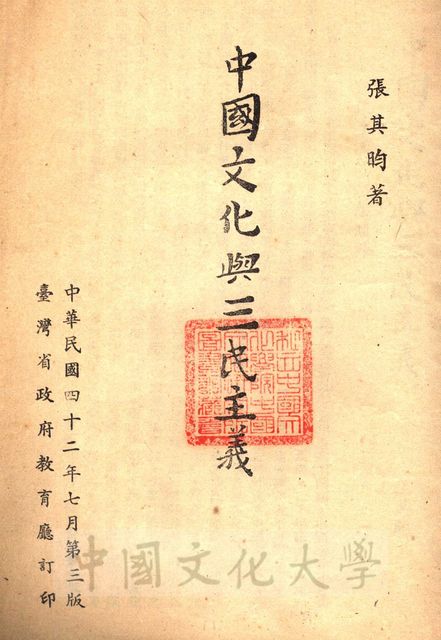 張其昀著
中國文化與三民主義
中華民國四十二年七月第三版
臺灣省政府教育廳訂印
中國文化大學